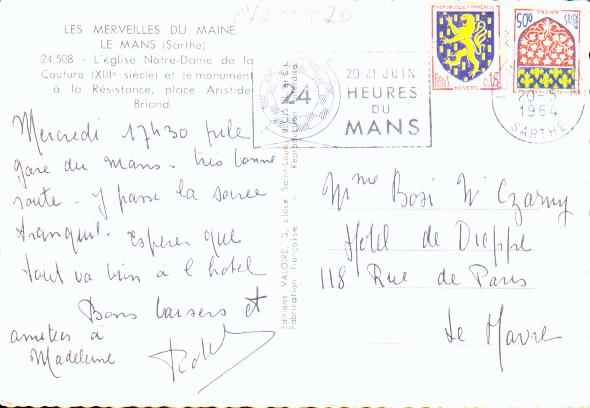 LES MERVEILLES DU MAINE
LE MANS (Sarthe)
24.508 - L'église Notre-Dame de la
Couture (XIIIe siècle) et le monument
à la Résistance, place Aristide
Briand.
Mercredi 17H30 pile
gare du mans - très bonne
route - J'y passe la soirée
tranquil. Espérer que
tout va bien à l'hotel
Bons baisers et
amitiés à
Madeleine
Editions VALOIRE, 3, Place Saint-Louis, BLOIS
Fabrication Française - Reproduction interdite
20 21 JUIN
24
HEURES
DU
MANS
REPUBLIQUE FRANÇAISE
0,15
NEVERS
0,05
AMIENS
20-5
1964
SARTHE
Mme Bosi W Czarny
Hôtel de Dieppe
118 Rue de Paris
Le Havre